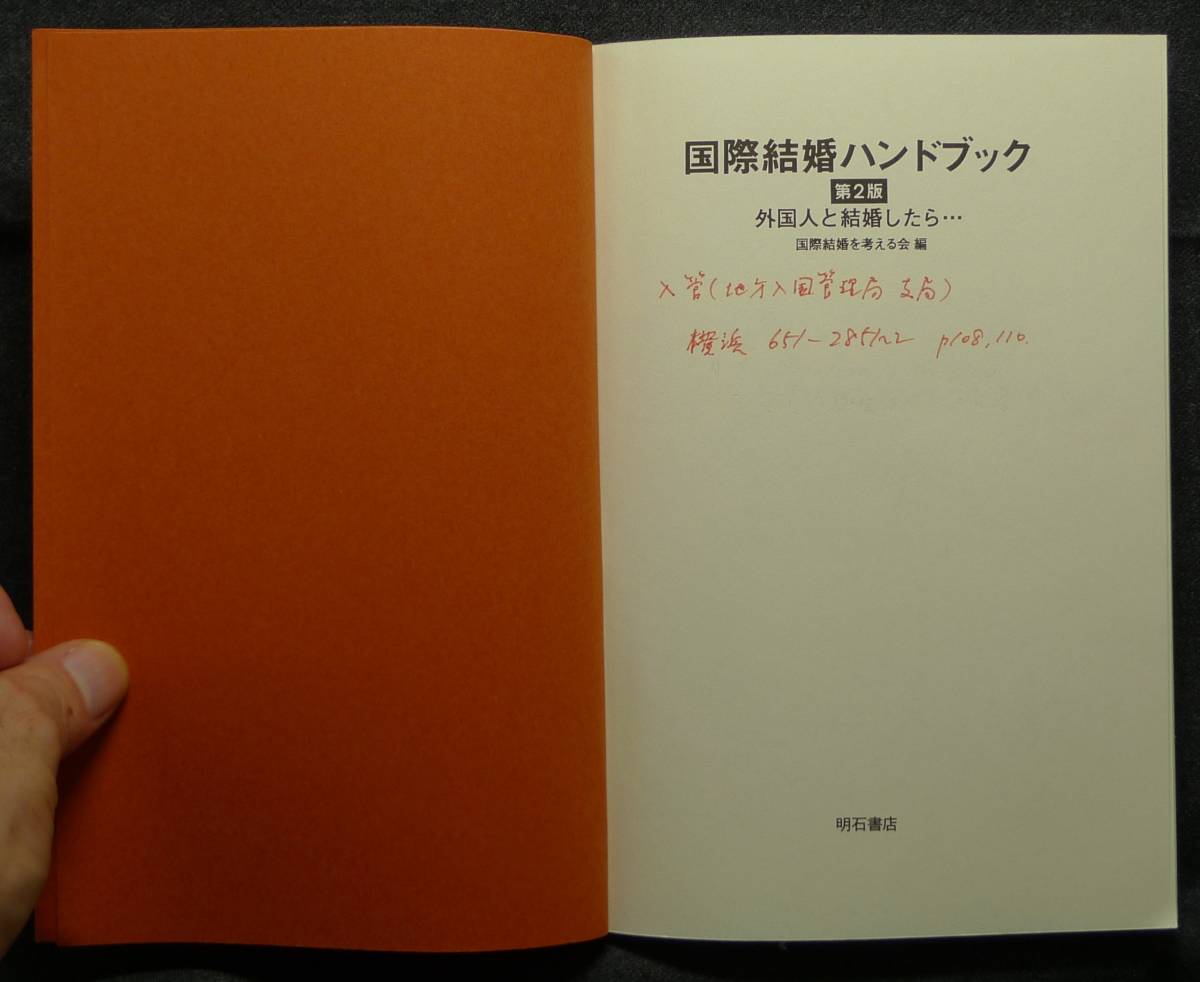 国際結婚ハンドブック
第2版
外国人と結婚したら…
国際結婚を考える会 編
入管(地方入国管理局 支局)
横浜 651-2851~2 p108,110.
明石書店